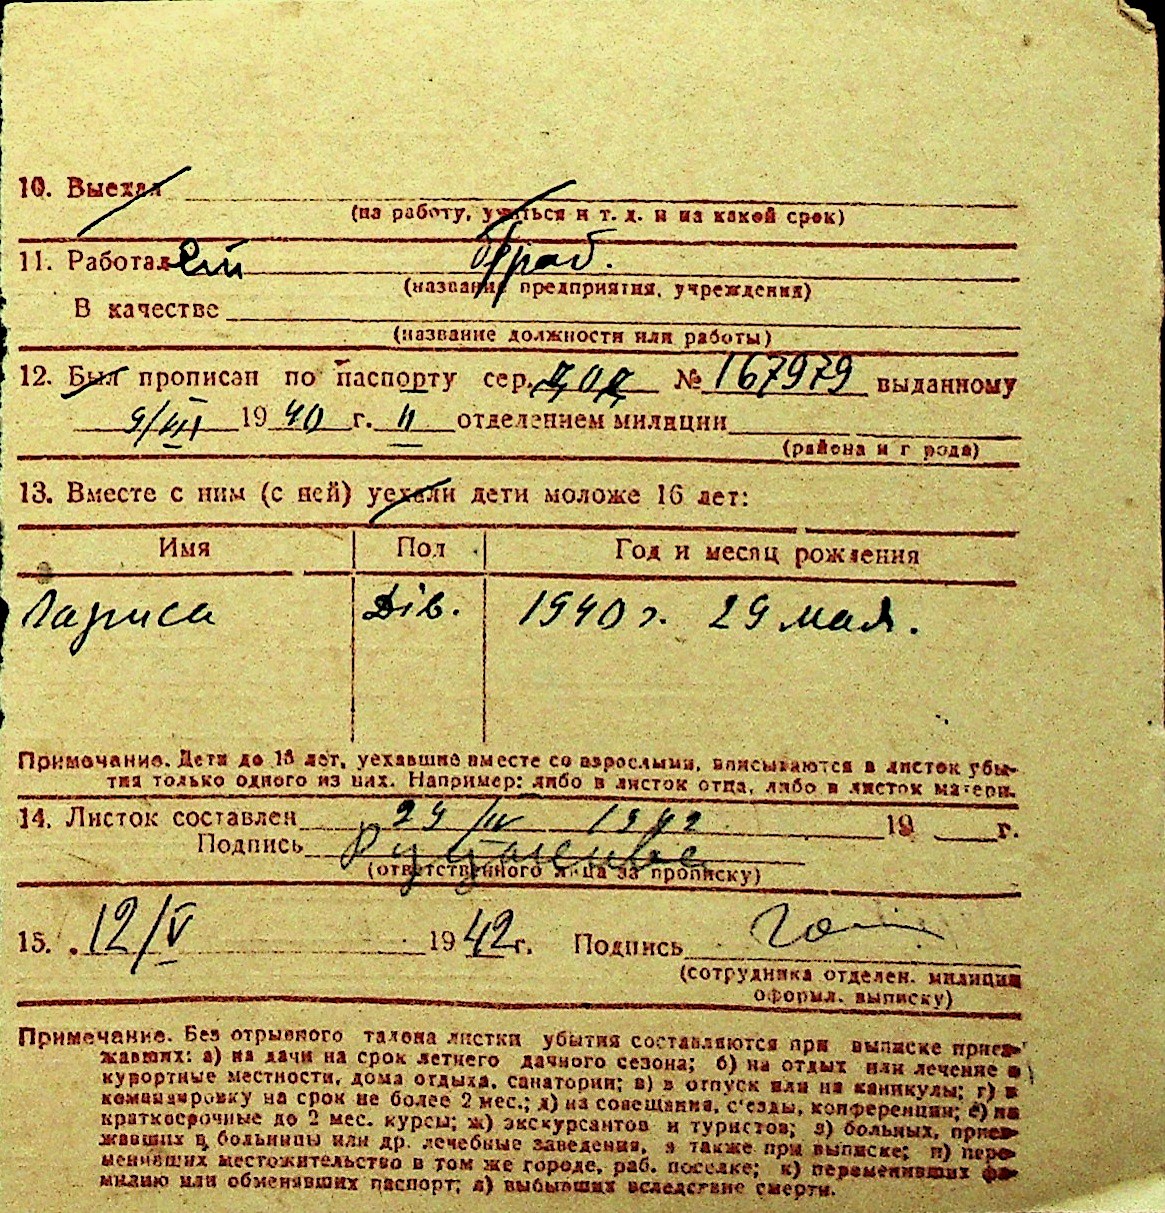 10. Выехал
(на работу, учиться и т. д. и на какой срок)
11. Работал
(название предприятия, учреждения)
В качестве
(название должности или работы)
12. Был прописан по паспорту сер. № 167979 выданному
9/III 1940 г. II отделением милиции
(района и г рода)
13. Вместе с ним (с ней) уехали дети моложе 16 лет:
Имя Пол Год и месяц рождения
Лариса Дів. 1940 г. 29 мая.
Примечание. Дети до 16 лет, уехавшие вместе со взрослыми, вписываются в листок убы-
тия только одного из них. Например: либо в листок отца, либо в листок матери.
14. Листок составлен 24/IV 1942 19 г.
Подпись
(ответственного лица за прописку)
15. 12/V 1942 г. Подпись
(сотрудника отделен. милиции
оформл. выписку)
Примечание. Без отрывного талона листки убытия составляются при выписке приез-
жавших: а) на дачи на срок летнего дачного сезона; б) на отдых или лечение в
курортные местности, дома отдыха, санатории; в) в отпуск или на каникулы; г) в
командировку на срок не более 2 мес.; д) на совещания, с'езды, конференции; е) на
краткосрочные до 2 мес. курсы; ж) экскурсантов и туристов; з) больных, приез-
жавших в больницы или др. лечебные заведения, а также при выписке; и) пере-
менивших местожительство в том же городе, раб. поселке; к) переменивших фа-
милию или обменявших паспорт; л) выбывших вследствие смерти.